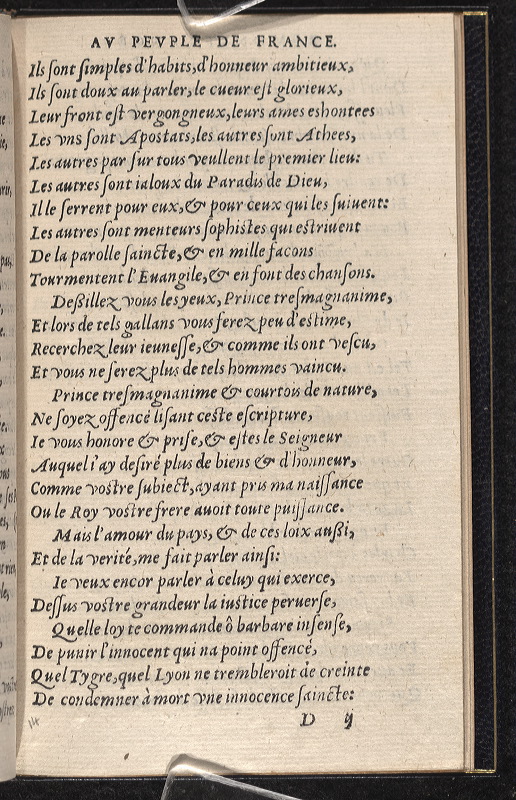 AV PEVPLE DE FRANCE.
Ils sont simples d'habits, d'honneur ambitieux,
Ils sont doux au parler, le cueur est glorieux,
Leur front est vergongneux, leurs ames eshontees
Les vns sont Apostats, les autres sont Athees,
Les autres par sur tous veullent le premier lieu:
Les autres sont ialoux du Paradis de Dieu,
Il le serrent pour eux, & pour ceux qui les suiuent:
Les autres sont menteurs sophistes qui estriuent
De la parolle saincte, & en mille facons
Tourmentent l'Euangile, & en font des chansons.
Deßillez vous les yeux, Prince tresmagnanime,
Et lors de tels gallans vous ferez peu d'estime,
Recerchez leur ieunesse, & comme ils ont vescu,
Et vous ne serez plus de tels hommes vaincu.
Prince tresmagnanime & courtois de nature,
Ne soyez offencé lisant ceste escripture,
Ie vous honore & prise, & estes le Seigneur
Auquel i'ay desiré plus de biens & d'honneur,
Comme vostre subiect, ayant pris ma naissance
Ou le Roy vostre frere auoit toute puissance.
Mais l'amour du pays, & de ces loix außi,
Et de la verité, me fait parler ainsi:
Ie veux encor parler à celuy qui exerce,
Dessus vostre grandeur la iustice peruerse,
Quelle loy te commande ô barbare insense,
De punir l'innocent qui na point offencé,
Quel Tygre, quel Lyon ne trembleroit de creinte
De condemner à mort vne innocence saincte:
D ij
14